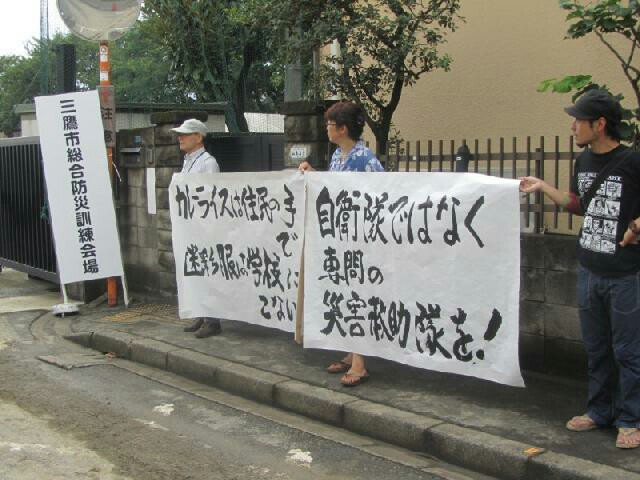 三鷹市総合防災訓練会場
カレーライスは住民の手で
迷彩服の学校にこないで
自衛隊ではなく
専門の
災害救助隊を!